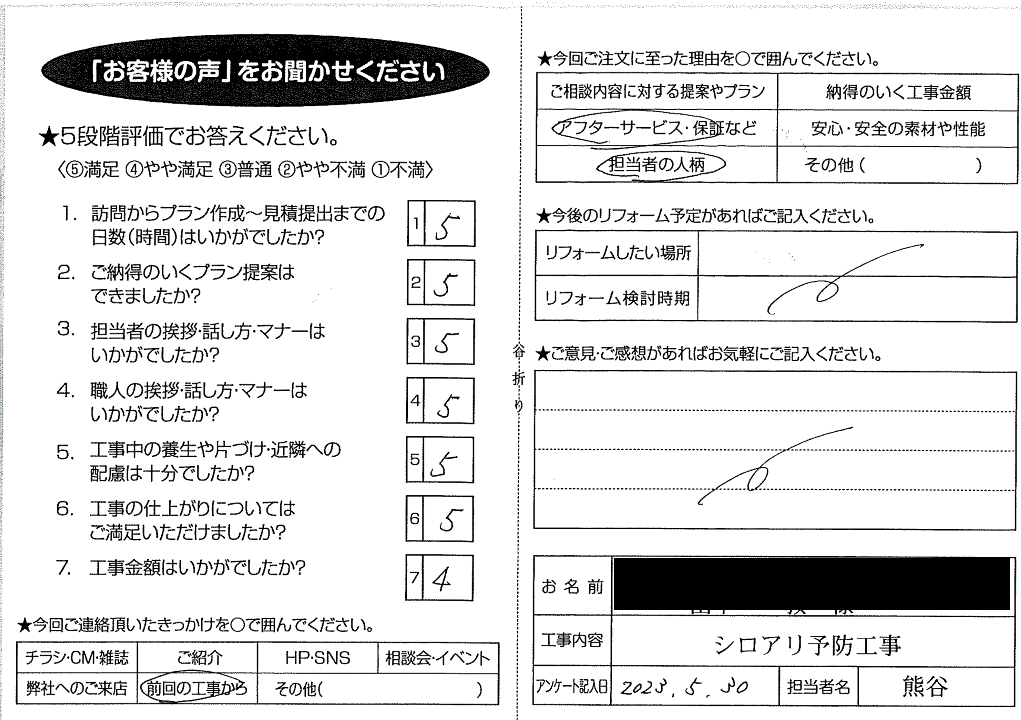 「お客様の声」をお聞かせください
★5段階評価でお答えください。
〈⑤満足 ④やや満足 ③普通 ②やや不満 ①不満〉
1. 訪問からプラン作成～見積提出までの
日数(時間)はいかがでしたか?
1 5
2. ご納得のいくプラン提案は
できましたか?
2 5
3. 担当者の挨拶・話し方・マナーは
いかがでしたか?
3 5
4. 職人の挨拶・話し方・マナーは
いかがでしたか?
4 5
5. 工事中の養生や片づけ・近隣への
配慮は十分でしたか?
5 5
6. 工事の仕上がりについては
ご満足いただけましたか?
6 5
7. 工事金額はいかがでしたか?
7 4
★今回ご連絡頂いたきっかけを○で囲んでください。
チラシ・CM・雑誌 ご紹介 HP・SNS 相談会・イベント
弊社へのご来店 前回の工事から その他( )
谷折り
★今回ご注文に至った理由を○で囲んでください。
ご相談内容に対する提案やプラン 納得のいく工事金額
アフターサービス・保証など 安心・安全の素材や性能
担当者の人柄 その他( )
★今後のリフォーム予定があればご記入ください。
リフォームしたい場所
リフォーム検討時期
★ご意見・ご感想があればお気軽にご記入ください。
お名前
工事内容 シロアリ予防工事
アンケート記入日 2023.5.30 担当者名 熊谷